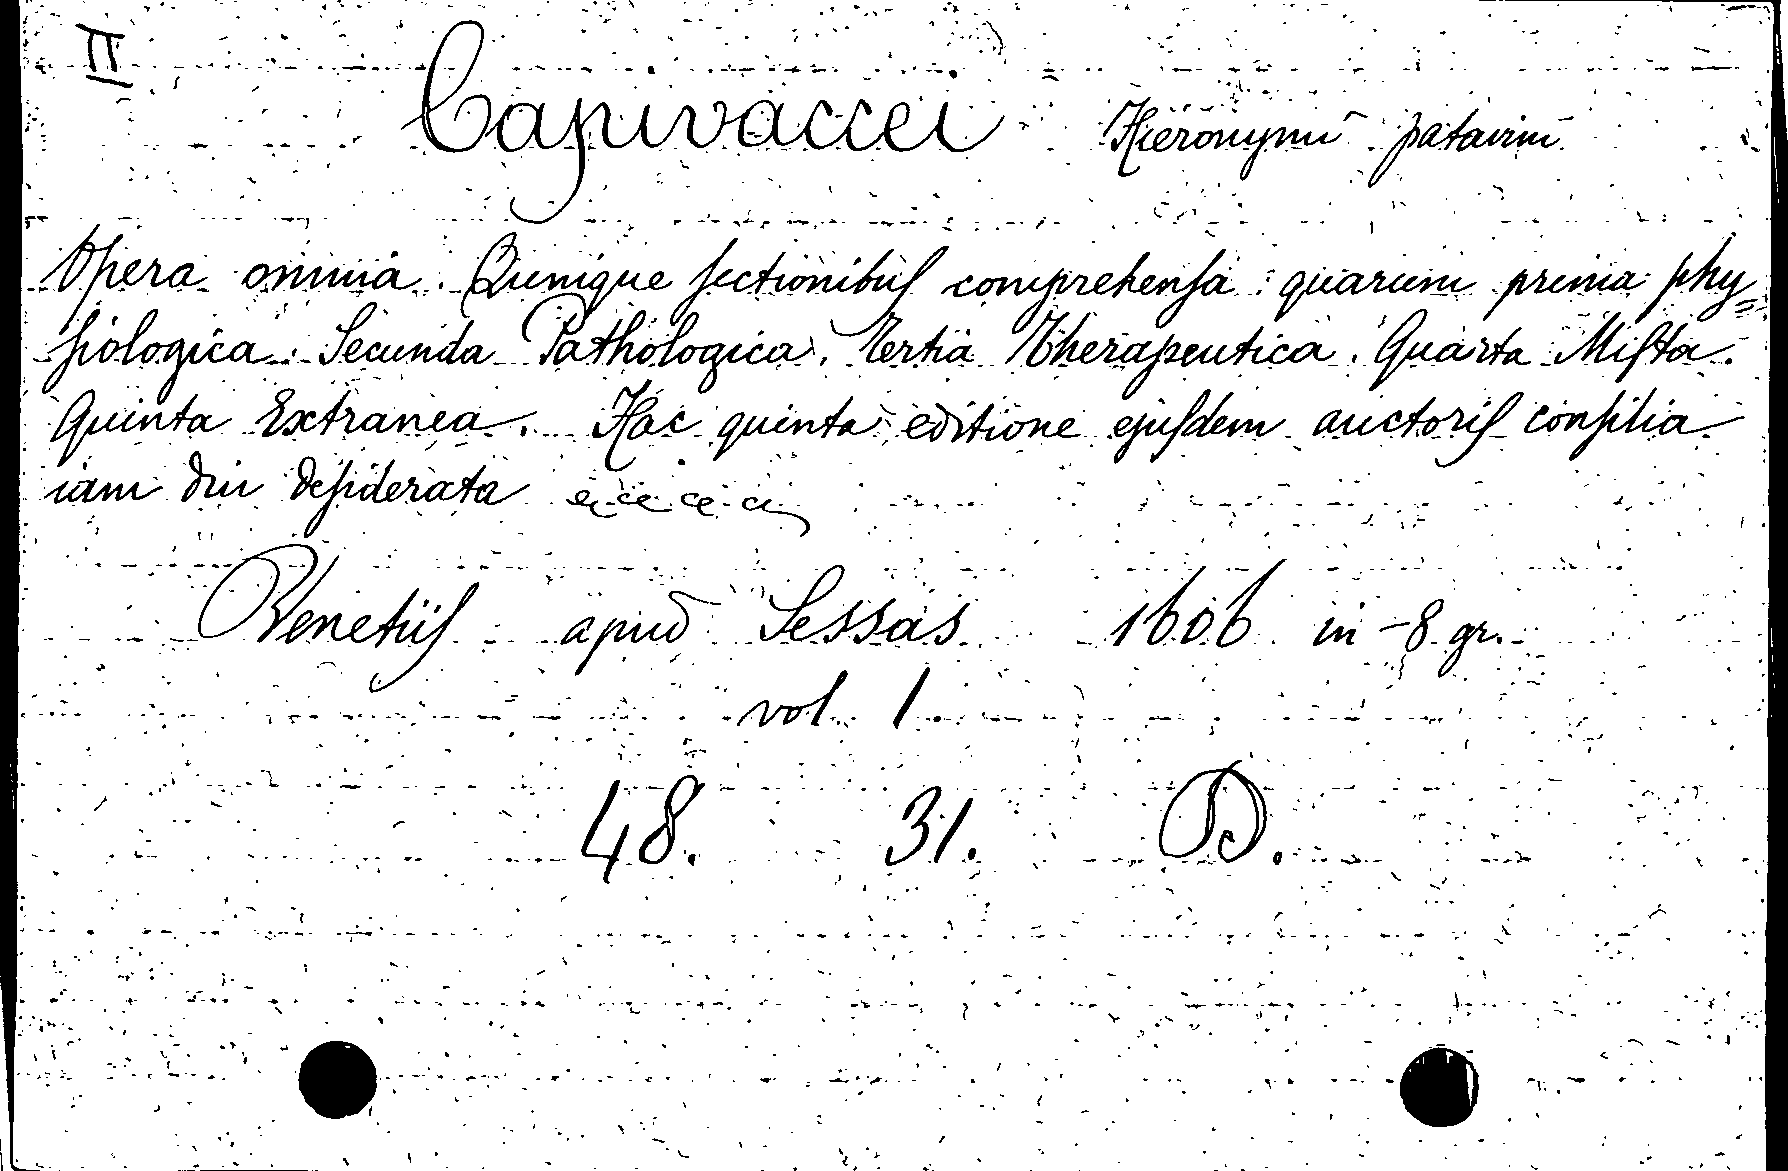 II
Capivaccei Hieronymi patavini
Opera omnia. Quinque sectionibus comprehensa: quarum prima phy=
siologica. Secunda Pathologica. Tertia Therapeutica. Quarta Mista.
Quinta Extranea. Hac quinta editione ejusdem auctoris consilia
iam diu desiderata
Venetiis apud Sessas 1606 in-8 gr.
vol. 1
48. 31. D.